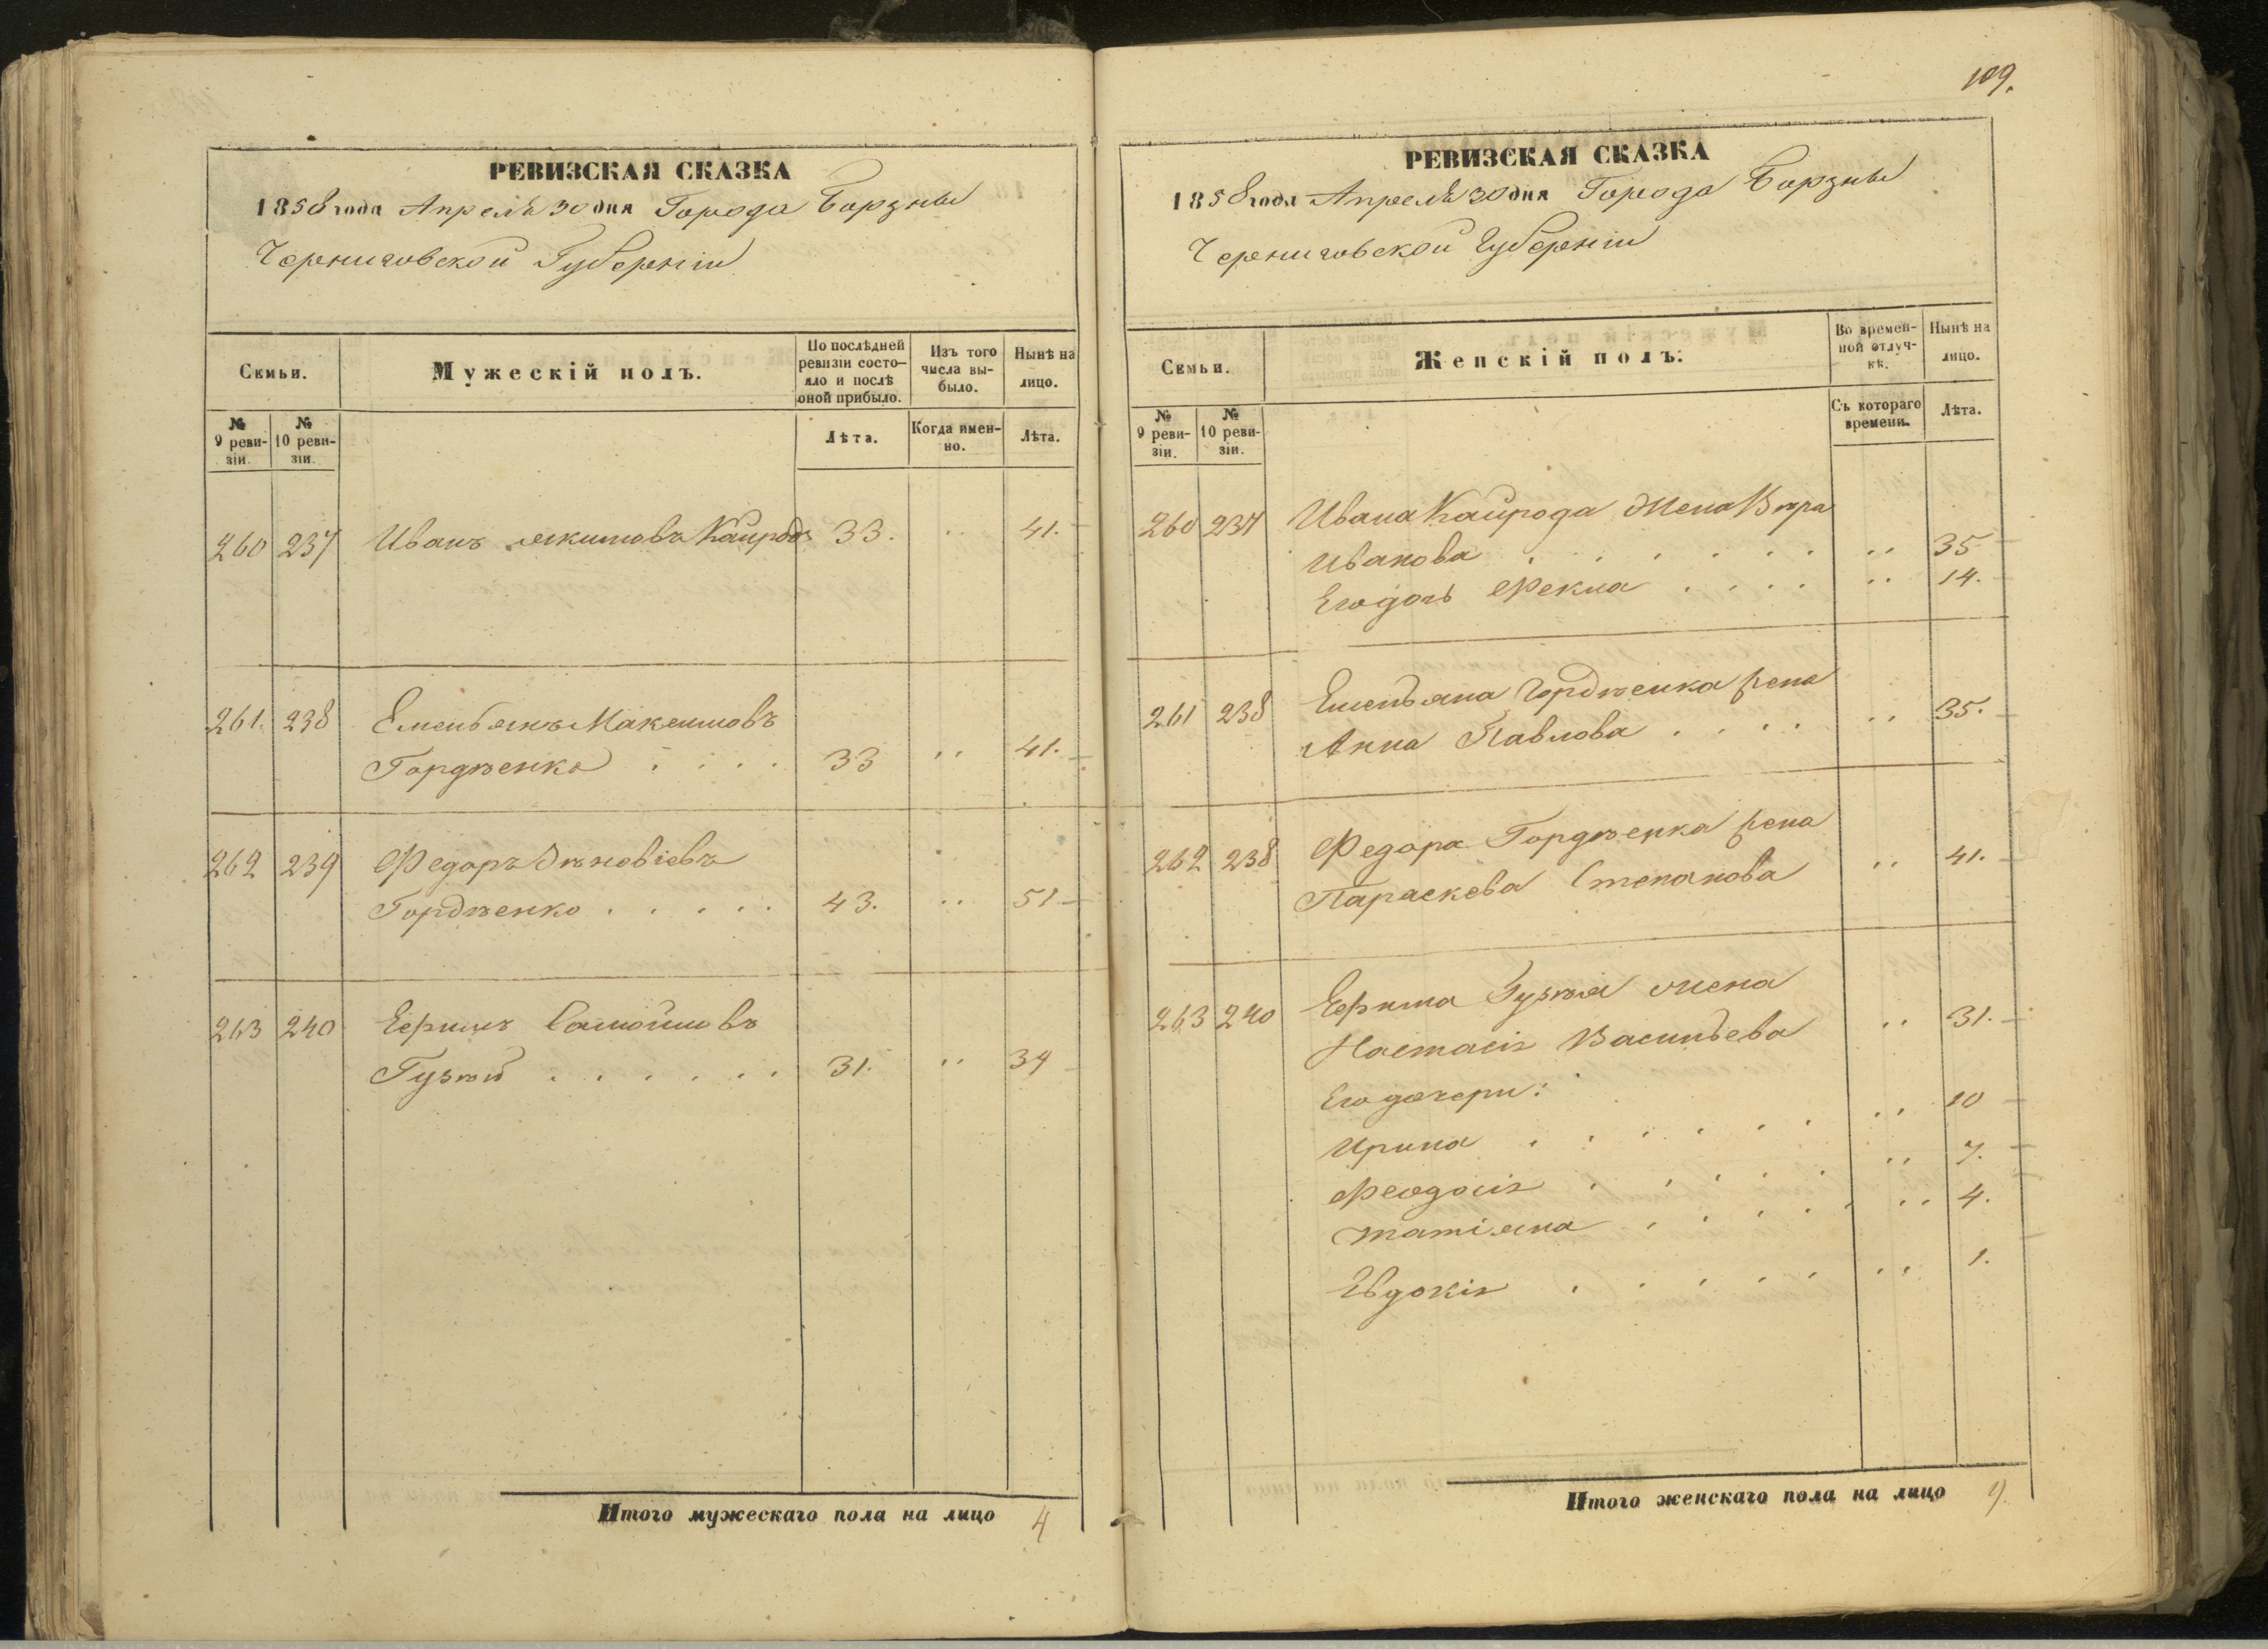 109.
РЕВИЗСКАЯ СКАЗКА
1858 года Апреля 30 дня Города Борзны
Черниговской Губерніи
Семьи.
Мужескій полъ.
По послѣдней ревизіи состояло и послѣ оной прибыло.
Изъ того числа выбыло.
Нынѣ на лицо.
№ 9 ревизіи.
№ 10 ревизіи.
Лѣта.
Когда именно.
Лѣта.
260 237 Иванъ Якимовъ Кайрода 33. 41.
261. 238 Емельянъ Максимовъ
Гордѣенко . . . . 33 41.
262 239 Федоръ Зѣновіевъ
Гордѣенко . . . . . 43. 51
263 240 Ефимъ Самойловъ
Гузѣй . . . . . . 31. 39
Итого мужескаго пола на лицо 4
РЕВИЗСКАЯ СКАЗКА
1858 года Апреля 30 дня Города Борзны
Черниговской Губерніи
Семьи.
Женскій полъ.
Во временной отлучкѣ.
Нынѣ на лицо.
№ 9 ревизіи.
№ 10 ревизіи.
Съ котораго времени.
Лѣта.
260 237 Ивана Кайрода Жена
Иванова . . . . . . 35
Его дочь Фекла . . . . 14.
261 238 Емельяна Гордѣенка жена
Анна Павлова . . . . 35.
262 238 Федора Гордѣенка жена
Параскева Степанова 41.
263 240 Ефима Гузѣя жена
Настасія Васильева 31.
Его дочери:
Ирина . . . . . . 10
Феодосія . . . . . 7.
Татіяна . . . . . 4.
Евдокія . . . . . 1.
Итого женскаго пола на лицо 9.